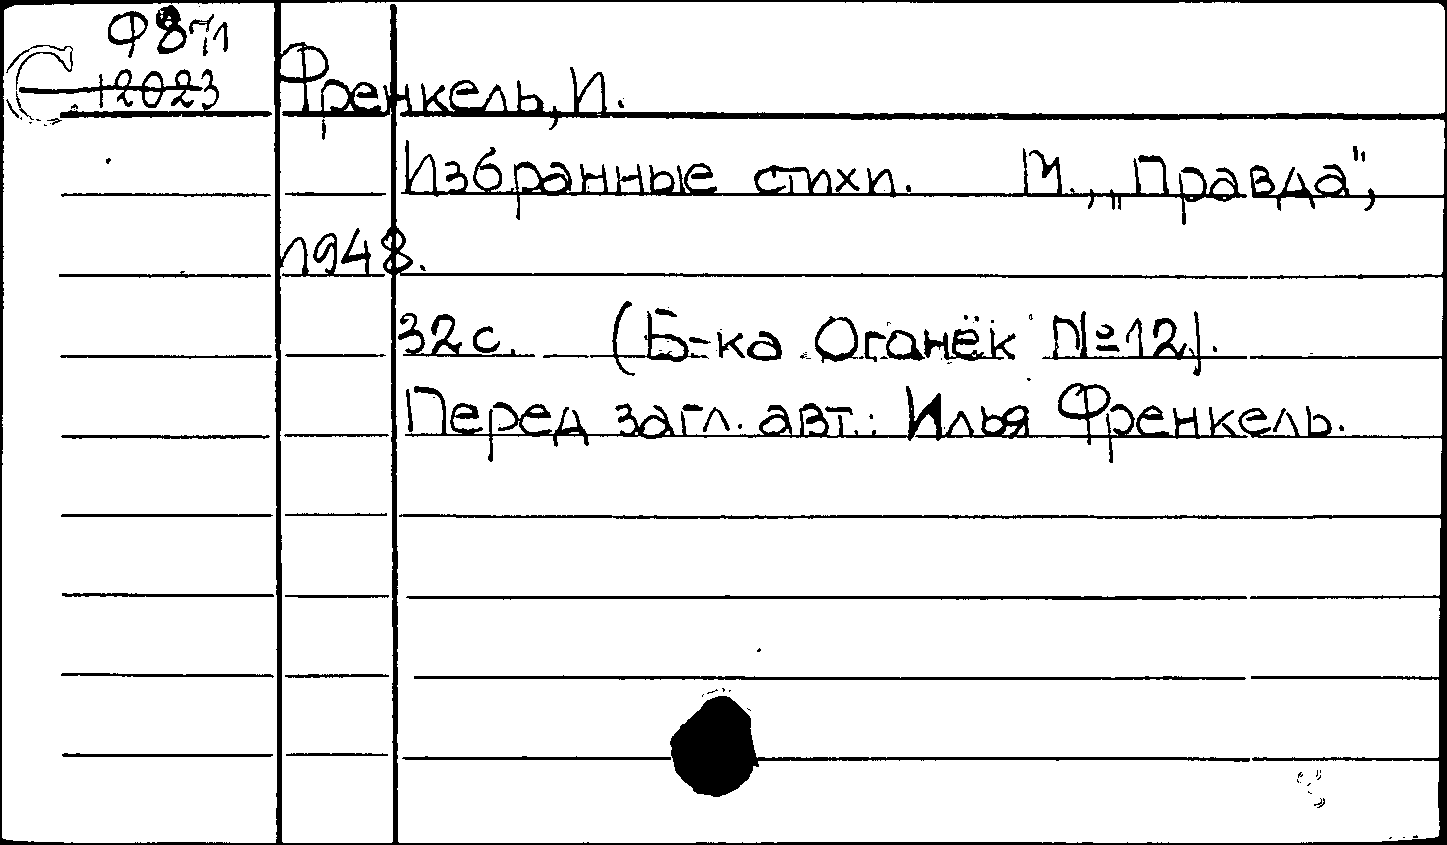 Ф871
С. 12023
Френкель, И.
Избранные стихи. М., „Правда",
1948.
32 с. (Б-ка Огонёк №12).
Перед загл. авт.: Илья Френкель.